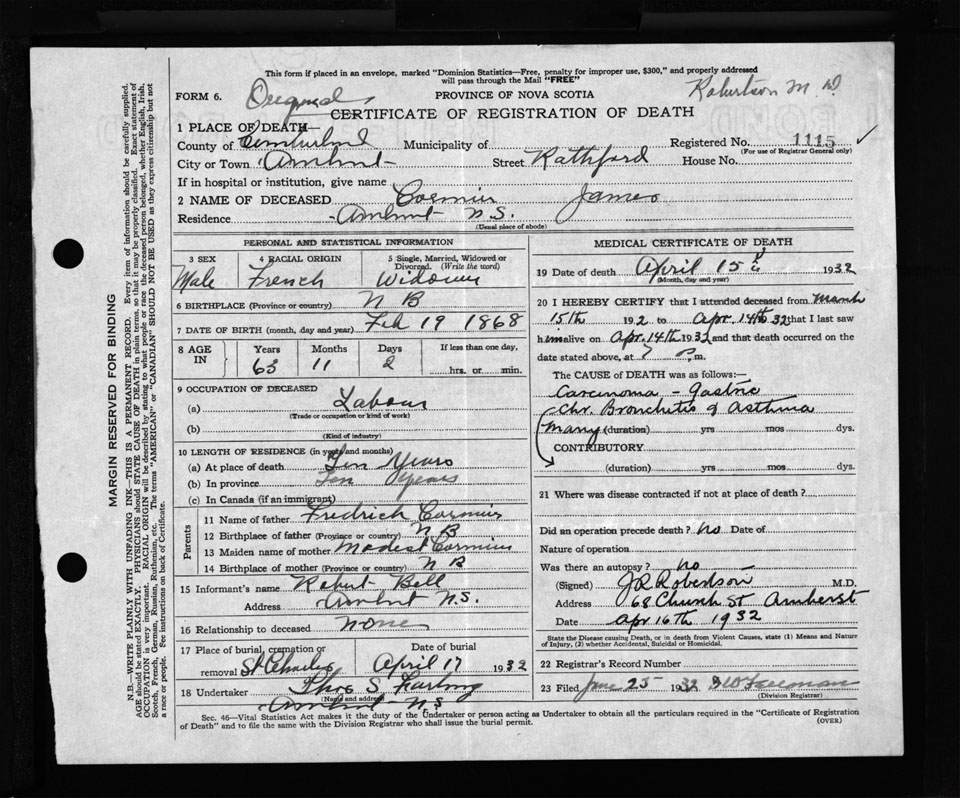 This form if placed in an envelope, marked "Dominion Statistics—Free, penalty for improper use, $300," and properly addressed
will pass through the Mail "FREE"
FORM 6. Original PROVINCE OF NOVA SCOTIA Robertson M D
CERTIFICATE OF REGISTRATION OF DEATH
1 PLACE OF DEATH—
County of Cumberland Municipality of Registered No. 1115
(For use of Registrar General only)
City or Town Amherst Street Rathford House No.
If in hospital or institution, give name
2 NAME OF DECEASED Cormier James
Residence Amherst N.S.
(Usual place of abode)
PERSONAL AND STATISTICAL INFORMATION
3 SEX 4 RACIAL ORIGIN 5 Single, Married, Widowed or Divorced. (Write the word)
Male French Widower
6 BIRTHPLACE (Province or country) N B
7 DATE OF BIRTH (month, day and year) Feb 19 1868
8 AGE IN Years Months Days If less than one day,
63 11 2 hrs. or min.
9 OCCUPATION OF DECEASED
(a) Labour
(Trade or occupation or kind of work)
(b)
(Kind of industry)
10 LENGTH OF RESIDENCE (in years and months)
(a) At place of death Ten Years
(b) In province Ten years
(c) In Canada (if an immigrant)
Parents
11 Name of father Fredrick Cormier
12 Birthplace of father (Province or country) N B
13 Maiden name of mother Modest Cormier
14 Birthplace of mother (Province or country) N B
15 Informant's name Robert Bell
Address Amherst N.S.
16 Relationship to deceased None
17 Place of burial, cremation or removal St Charles Date of burial April 17 1932
18 Undertaker Thos S
(Name and address)
Amherst N.S
MEDICAL CERTIFICATE OF DEATH
19 Date of death April 15 1932
(Month, day and year)
20 I HEREBY CERTIFY that I attended deceased from March
15th 192 to Apr. 14th 32 that I last saw
him alive on Apr. 14th 1932 and that death occurred on the
date stated above, at ? P. m.
The CAUSE OF DEATH was as follows:—
Carcinoma - gastric
Chr. Bronchitis & Asthma
many (duration) yrs mos dys.
CONTRIBUTORY
(duration) yrs mos dys.
21 Where was disease contracted if not at place of death?
Did an operation precede death? No Date of
Nature of operation
Was there an autopsy? no
(Signed) J R Robertson M.D.
Address 68 Church St Amherst
Date Apr 16th 1932
State the Disease causing Death, or in death from Violent Causes, state (1) Means and Nature of Injury, (2) whether Accidental, Suicidal or Homicidal.
22 Registrar's Record Number
23 Filed June 25 1932 Freeman
(Division Registrar)
Sec. 46—Vital Statistics Act makes it the duty of the Undertaker or person acting as Undertaker to obtain all the particulars required in the "Certificate of Registration
of Death" and to file the same with the Division Registrar who shall issue the burial permit. (OVER)
MARGIN RESERVED FOR BINDING
N.B.—WRITE PLAINLY WITH UNFADING INK—THIS IS A PERMANENT RECORD. Every item of information should be carefully supplied.
AGE should be stated EXACTLY. PHYSICIANS should STATE CAUSE OF DEATH in plain terms, so that it may be properly classified. Exact statement of
OCCUPATION is very important. RACIAL ORIGIN will be described by stating to what people or race the deceased person belonged, whether English, Irish,
Scotch, French, German, Russian, Ruthenian, etc. The terms "AMERICAN" or "CANADIAN" SHOULD NOT BE USED as they express citizenship but not
a race or people. See instructions on back of Certificate.